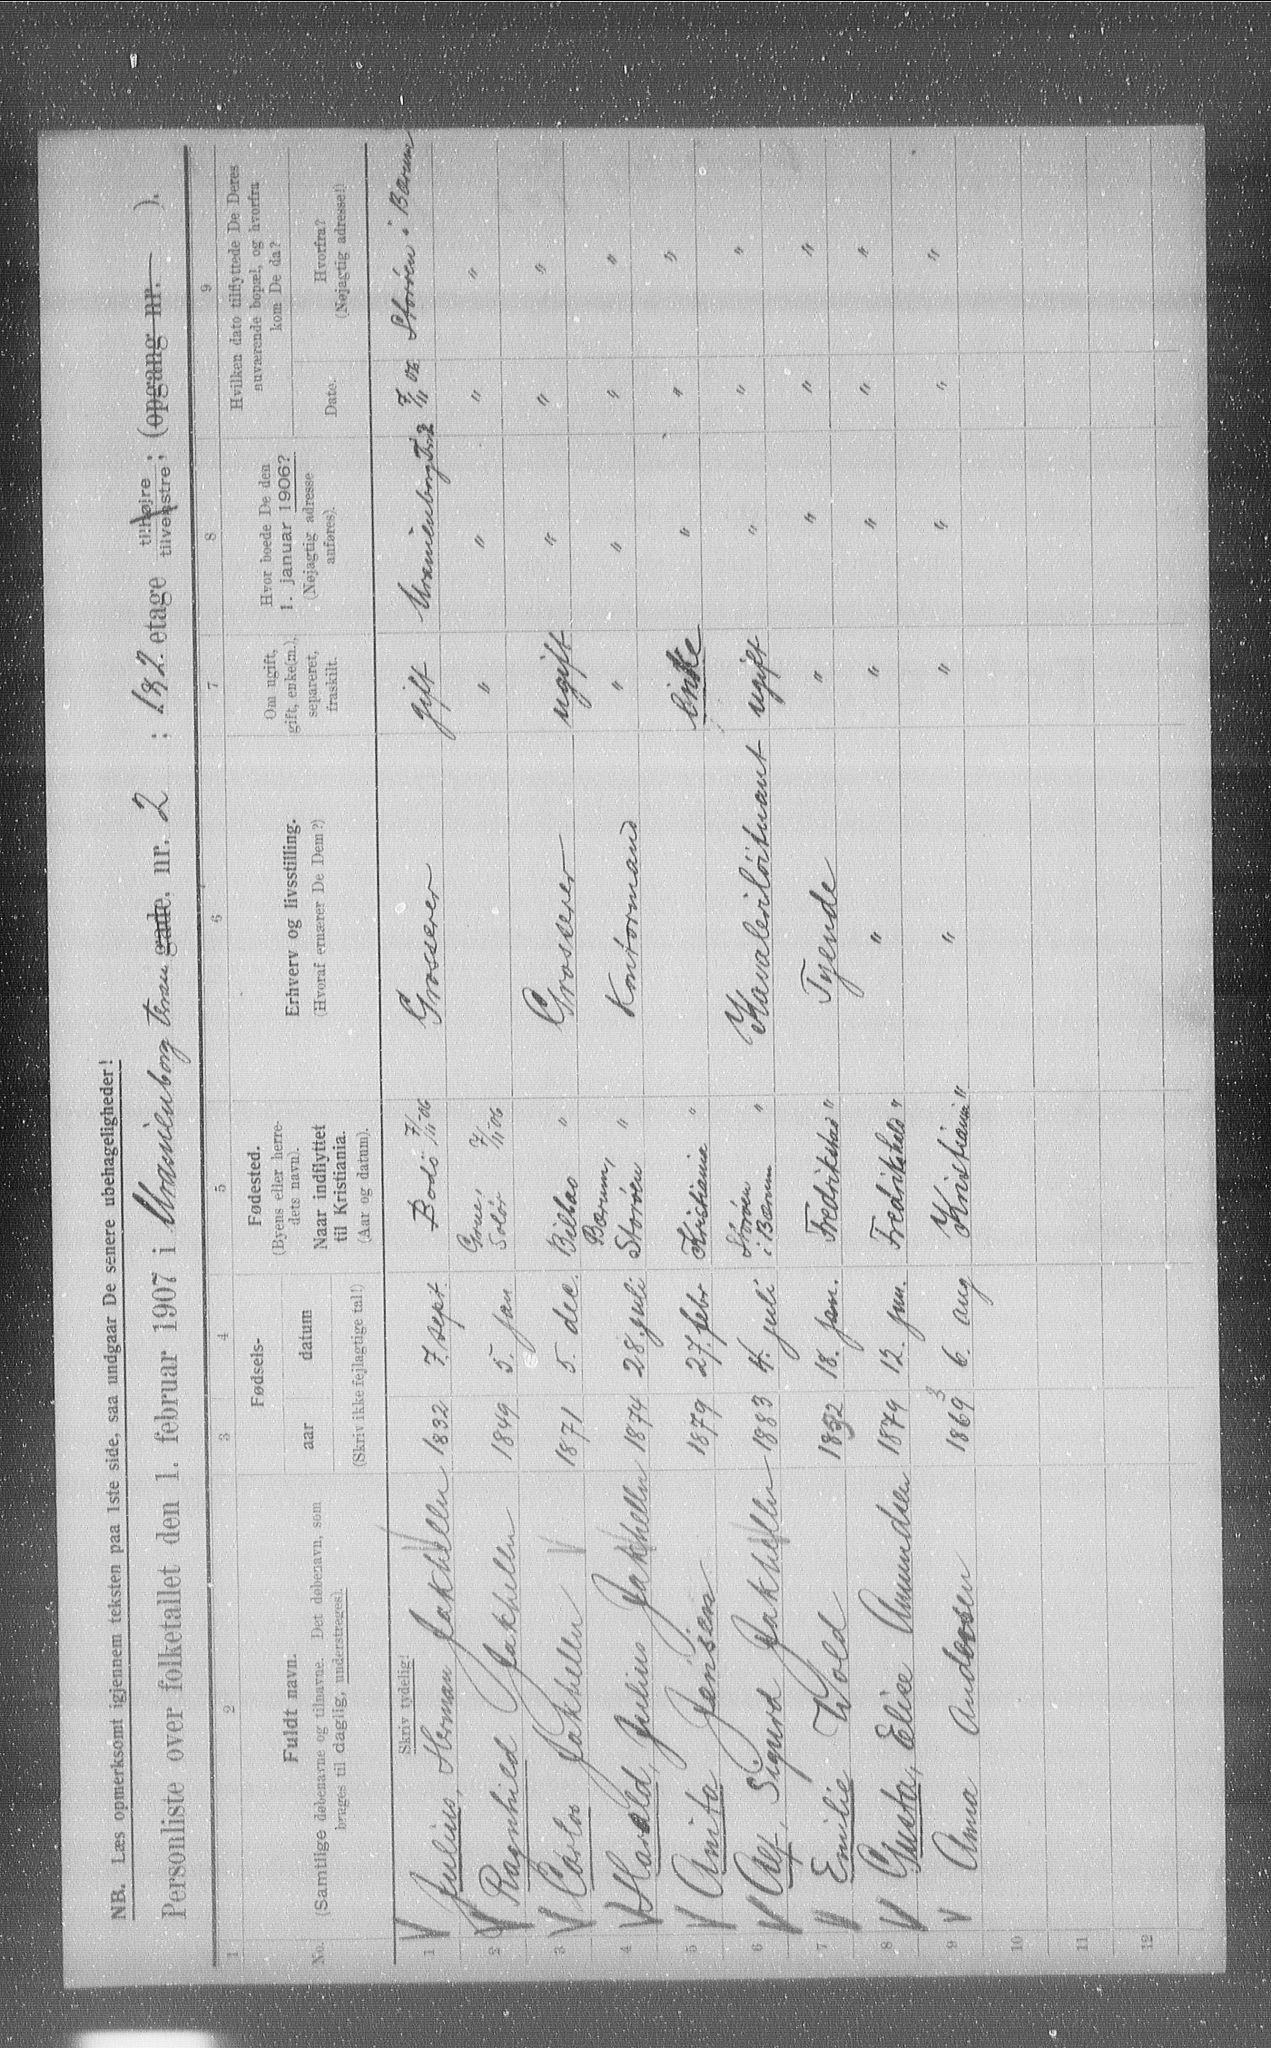 NB. Læs opmerksomt igjennem teksten paa 1ste side, saa undgaar De senere ubehageligheder!
Personliste over folketallet den 1. februar 1907 i Uranienborg terr. gade, nr. 2 ; 1 & 2. etage tilhøjre tilvenstre; (opgang nr. ).
1 2 3 4 5 6 7 8 9
No. Fuldt navn. (Samtlige døbenavne og tilnavne. Det døbenavn, som bruges til daglig, understreges). Skriv tydelig!
Fødsels- aar datum (Skriv ikke fejlagtige tal!)
Fødested. (Byens eller herredets navn). Naar indflyttet til Kristiania. (Aar og datum).
Erhverv og livsstilling. (Hvoraf ernærer De Dem?)
Om ugift, gift, enke(m.), separeret, fraskilt.
Hvor boede De den 1. januar 1906? (Nøjagtig adresse anføres).
Hvilken dato tilflyttede De Deres nuværende bopæl, og hvorfra kom De da? Dato. Hvorfra? (Nøjagtig adresse!)
1 Julius, Herman Jakhelln 1832 7. sept. Bodö 7/11 06 Grosserer gift Uranienborg T. 2 7/11 02 Storöen i Bærum
2 Ragnhild Jakhelln 1849 5. jan Grue, Solör 7/11 06 " " " "
3 Carlos Jakhelln 1871 5. dec. Bilbao " Grosserer ugift " " "
4 Harald, Julius Jakhelln 1874 28. juli Bærum, Storöen " Kontormand " " " "
5 Anita Jensen 1879 27. febr Kristiania " Enke " " "
6 Alf, Sigurd Jakhelln 1883 4. juli Storöen i Bærum " Kavaleriløitnant ugift " " "
7 Emilie Wold 1882 18. jan. Fredrikstad " Tyende " " " "
8 Gusta, Elise Amundsen 1879 12. jun. Fredrikshald " " " " " "
9 Anna Andersen 1869 6. aug Kristiania " " " " " "
10
11
12